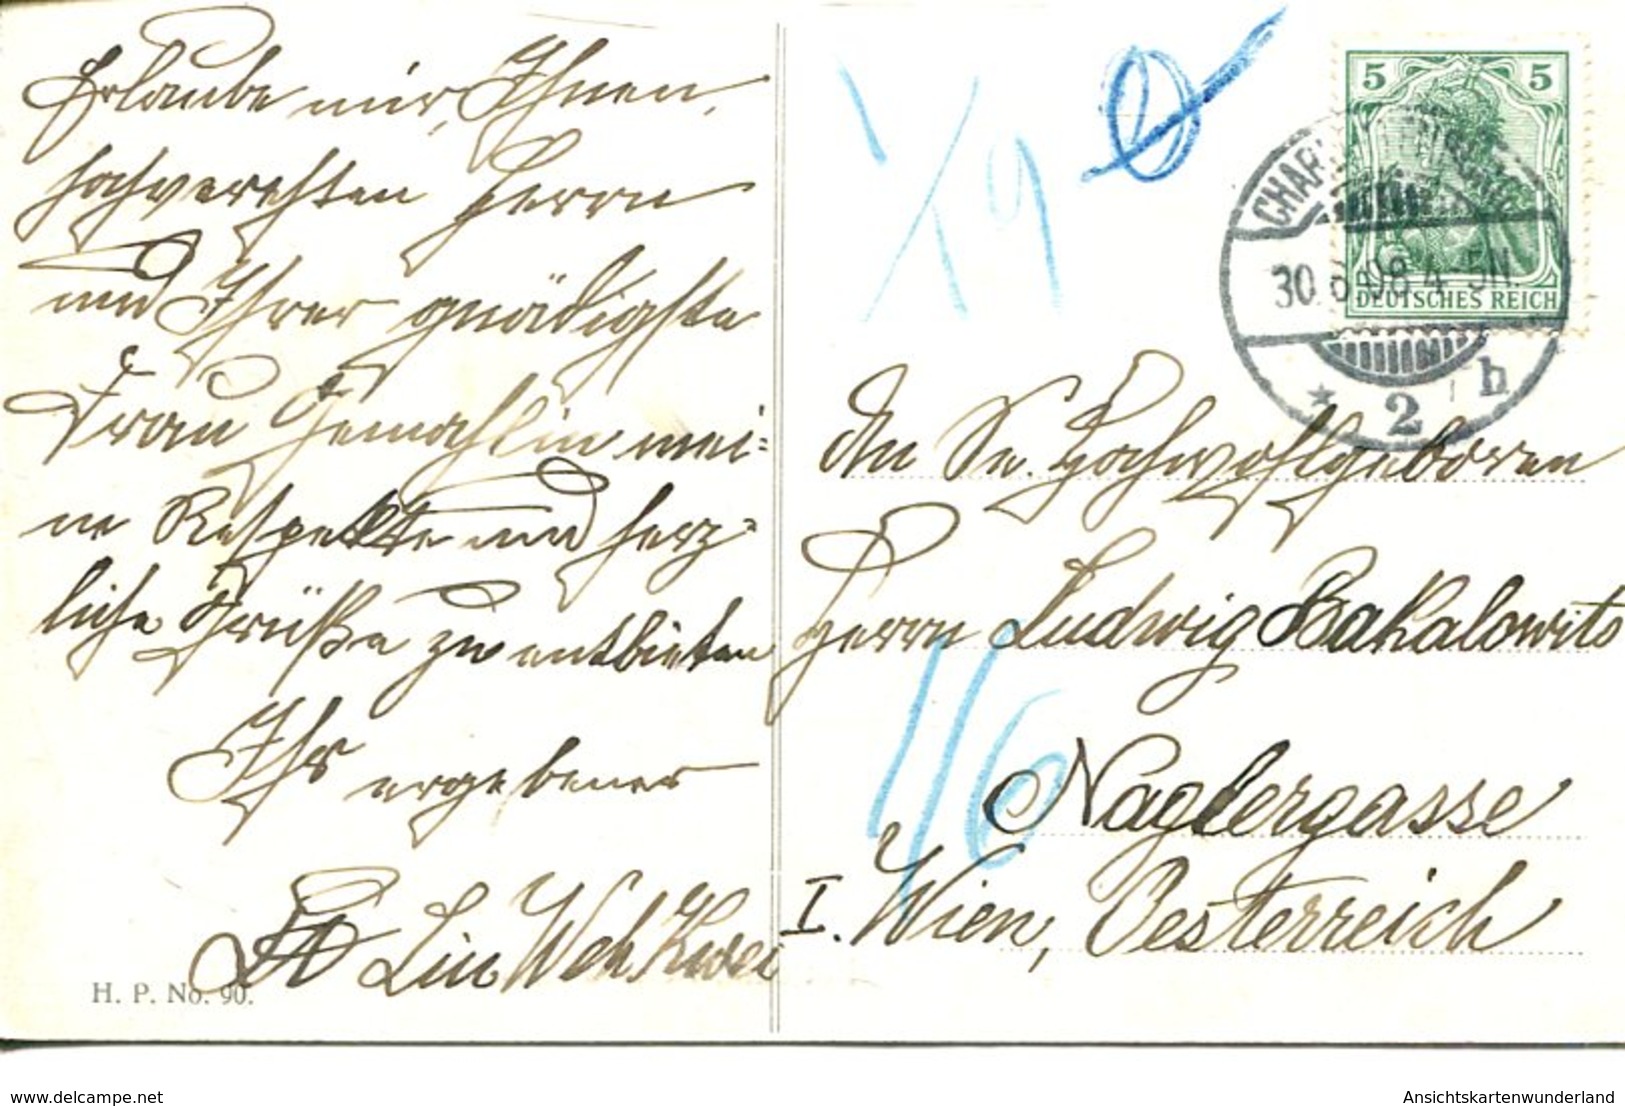 Erlaube mir, Ihnen,
hochverehrten Herrn
und Ihrer gnädigste
Frau Gemahlin mei-
ne Respekte und herz-
liche Grüße zu entbieten
Ihr ergebener
Lin Weh Kwei
H. P. No. 90.
5 5
DEUTSCHES REICH
30. 6. 08 4-5N.
* 2 b
An Sr. Hochwohlgeboren
Herrn Ludwig Bakalowits
Naglergasse
I. Wien, Oesterreich
116
www.delcampe.net
Ansichtskartenwunderland